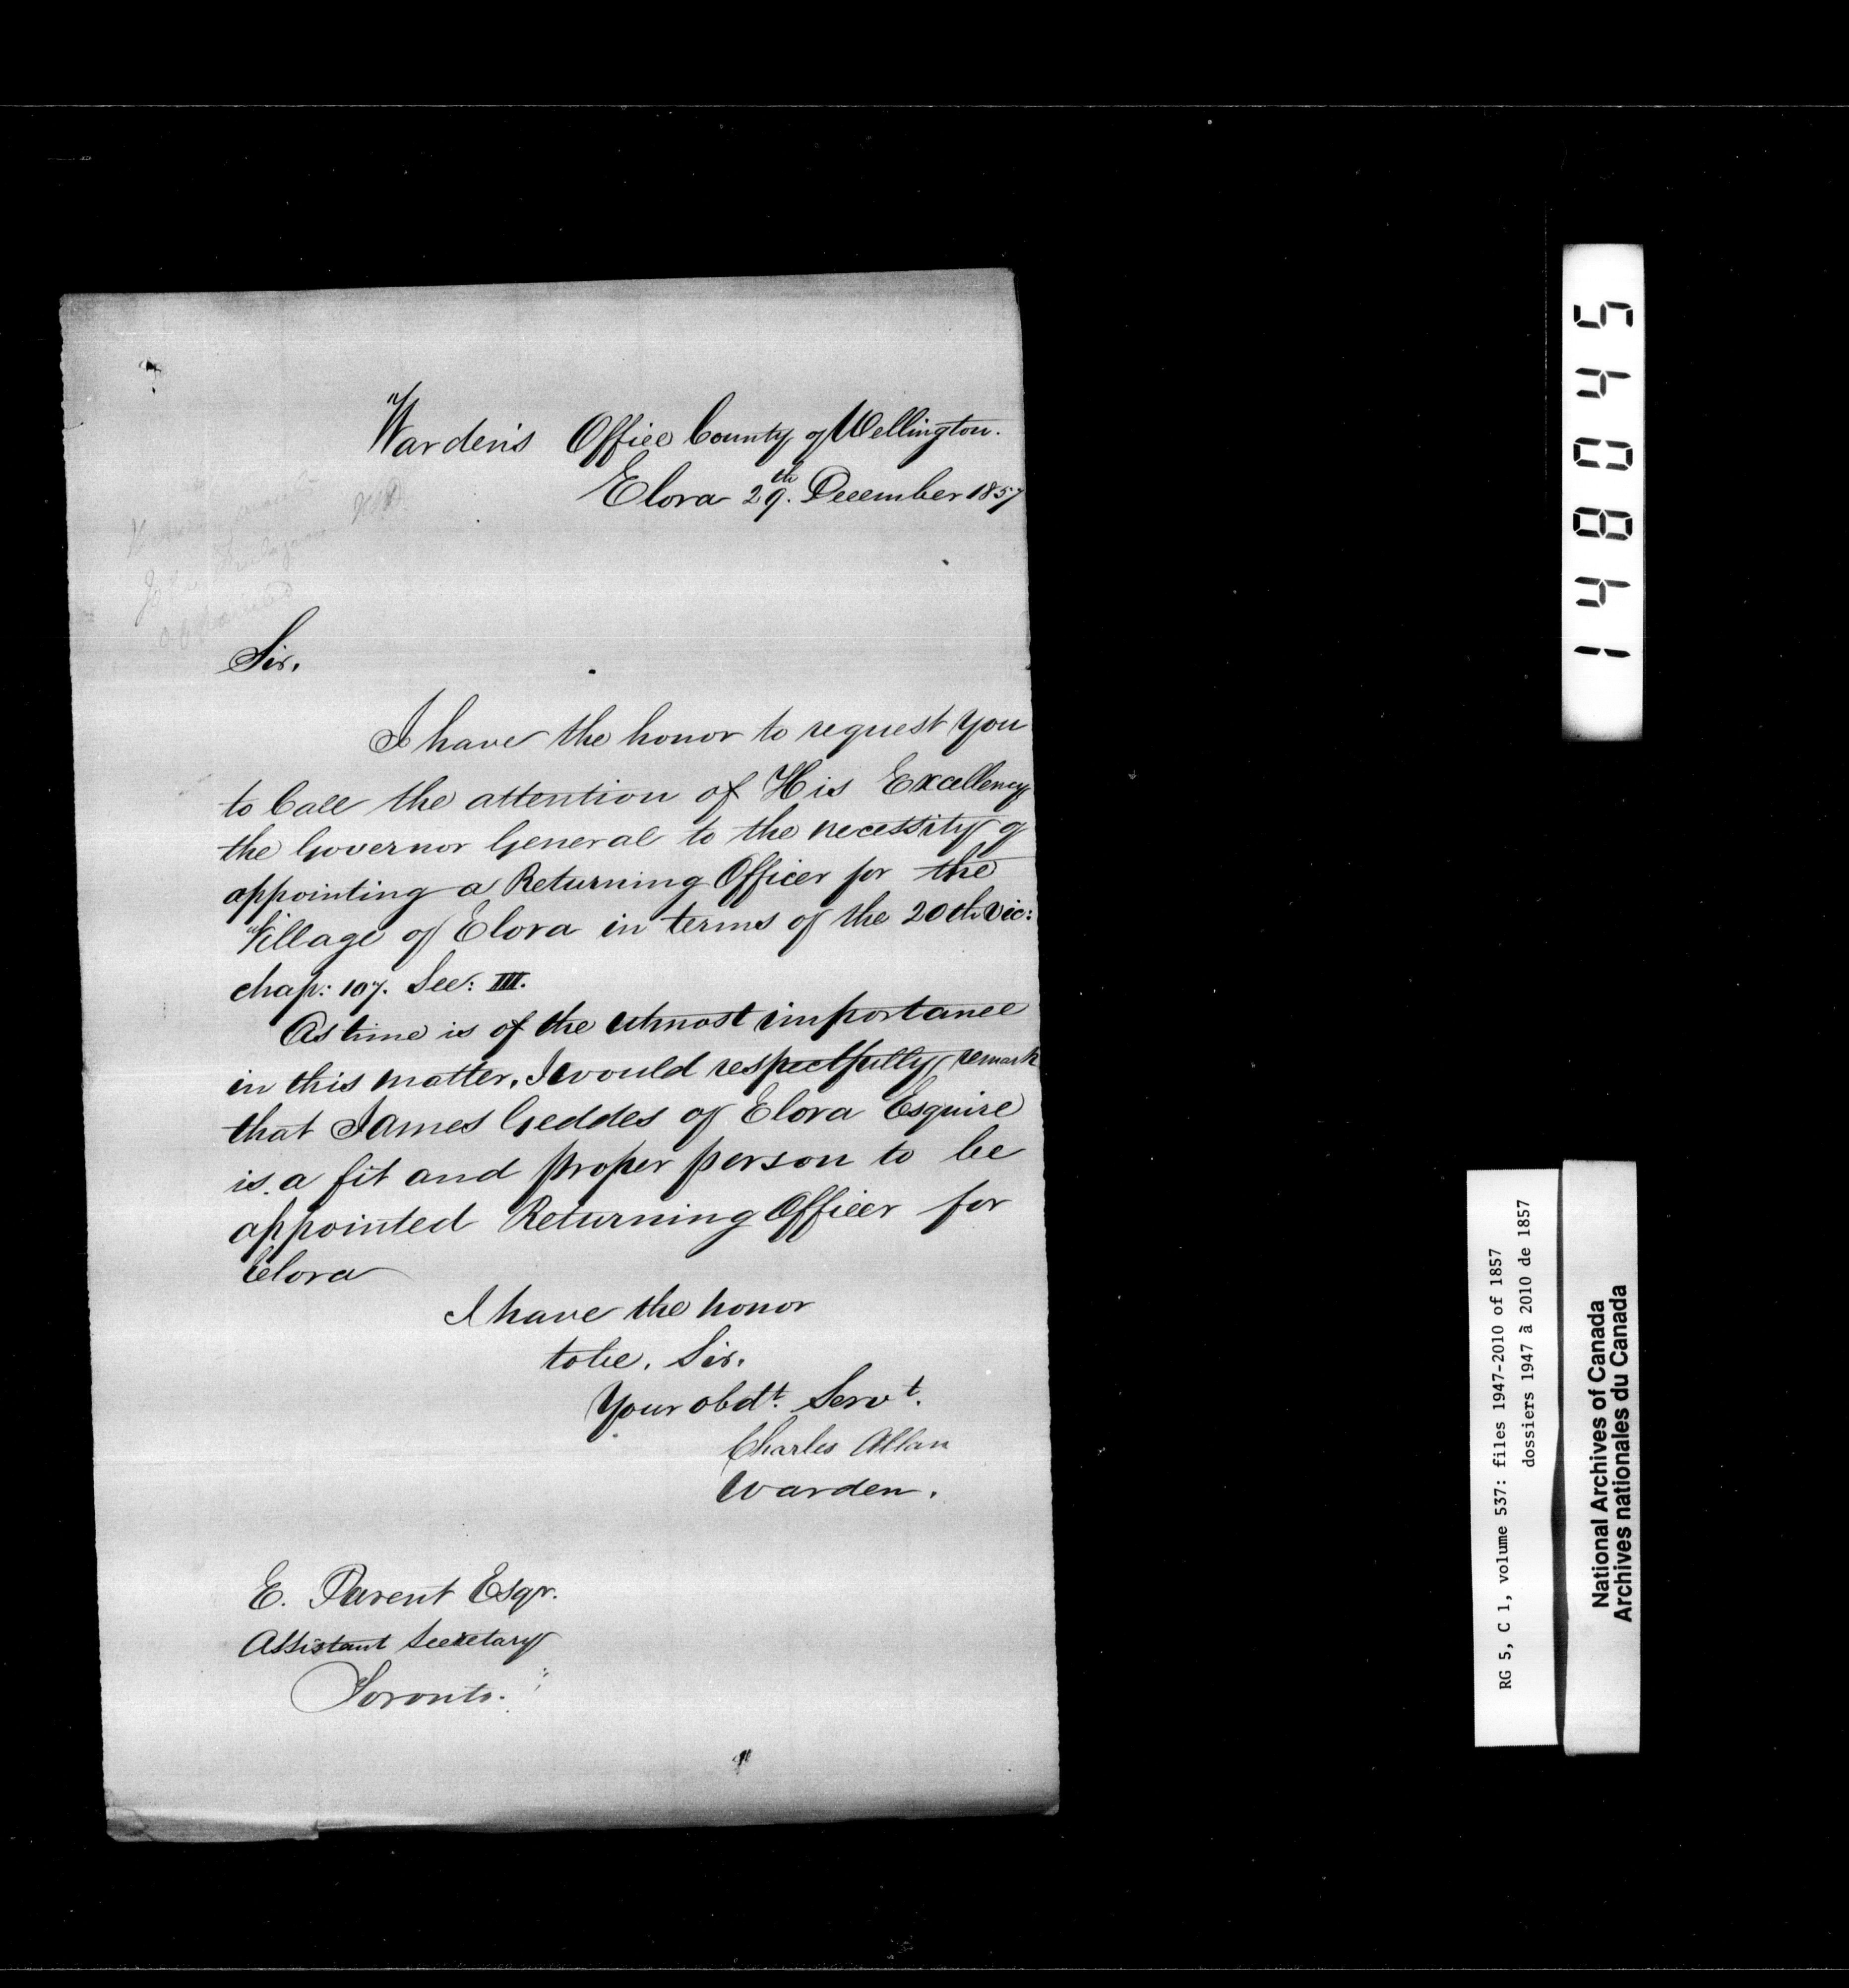 Warden's Office County of Wellington.
Elora 29th. December 1857
appointed
Sir,
I have the honor to request you
to Call the attention of His Excellency
the Governor General to the necessity of
appointing a Returning Officer for the
Village of Elora in terms of the 20th Vic:
chap: 107. Sec: IIII.
As time is of the utmost importance
in this matter, I would respectfully remark
that James Geddes of Elora Esquire
is a fit and proper person to be
appointed Returning Officer for
Elora
I have the honor
to be, Sir,
Your obdt. Servt.
Charles Allan
Warden.
E. Parent Esqr.
Assistant Secretary
Toronto.
148045
RG 5, C 1, volume 537: files 1947-2010 of 1857
dossiers 1947 à 2010 de 1857
National Archives of Canada
Archives nationales du Canada